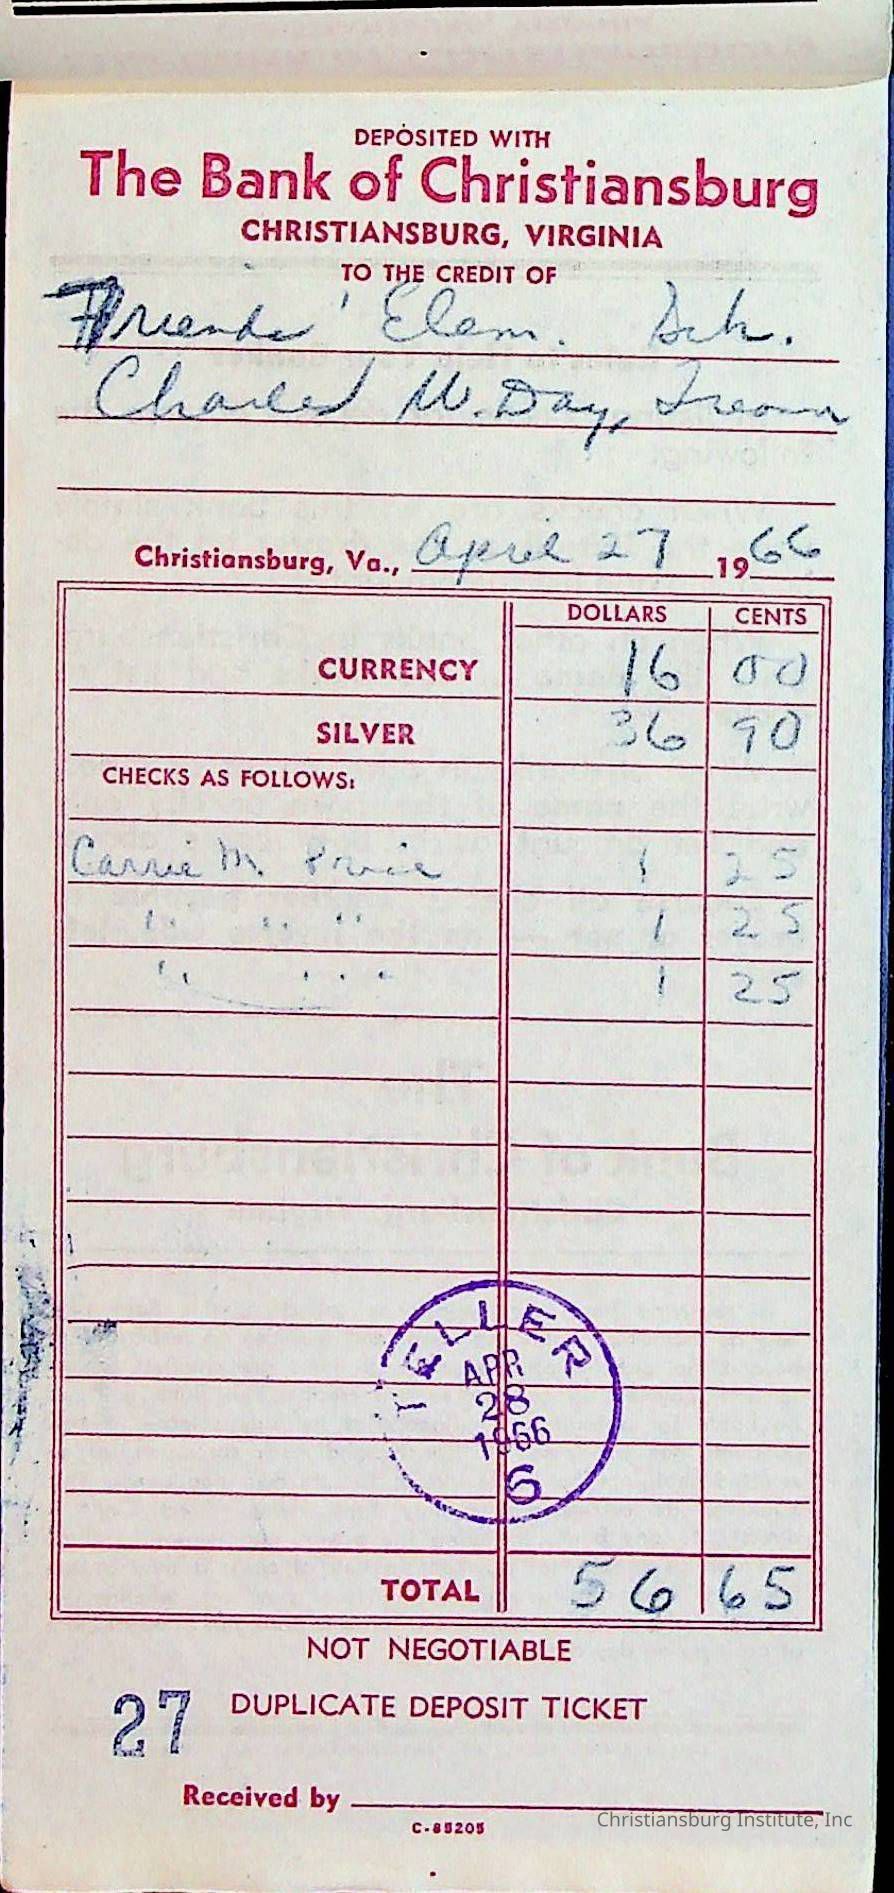 DEPOSITED WITH
The Bank of Christiansburg
CHRISTIANSBURG, VIRGINIA
TO THE CREDIT OF
Friends' Elem. Sch.
Charles W. Day, Treasur
Christiansburg, Va., April 27 1966
DOLLARS CENTS
CURRENCY 16 00
SILVER 36 90
CHECKS AS FOLLOWS:
Carrie M. Price 1 25
" " " 1 25
" " " 1 25
TELLER
APR
28
1966
6
TOTAL 56 65
NOT NEGOTIABLE
27 DUPLICATE DEPOSIT TICKET
Received by
Christiansburg Institute, Inc
C-85205